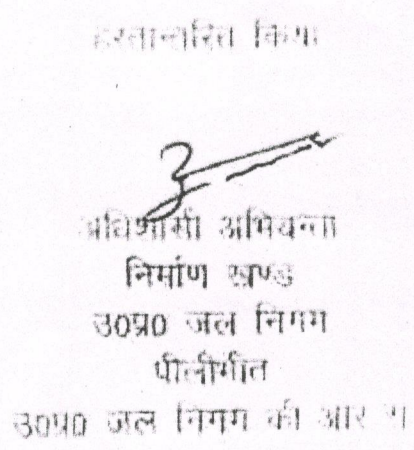 हस्तान्तरित किया
अधिशासी अभियन्ता
निर्माण खण्ड
उ०प्र० जल निगम
पीलीभीत
उ०प्र० जल निगम की ओर